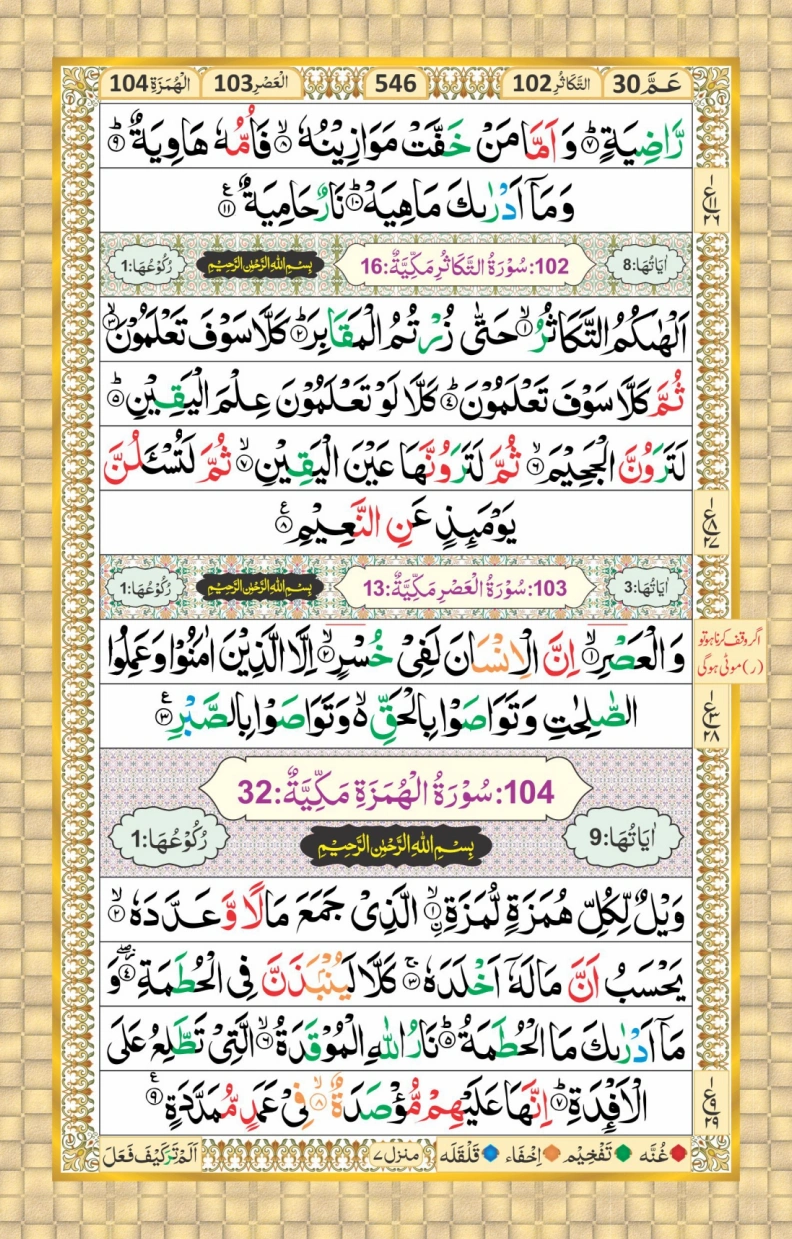 عَـمَّ 30
التَّكَاثُرِ 102
546
الْعَصْرِ 103
الْهُمَزَةِ 104
رَّاضِيَةٍ ۙ‏﴿۷﴾ وَ اَمَّا مَنْ خَفَّتْ مَوَازِيْنُهٗ ۙ‏﴿۸﴾ فَاُمُّهٗ هَاوِيَةٌ ؕ‏﴿۹﴾
وَمَاۤ اَدْرٰىكَ مَاهِيَهْ ؕ‏﴿۱۰﴾ نَارٌ حَامِيَةٌ ‏﴿۱۱﴾
ع ۱ ۱۱ ۲۶
اٰيَاتُهَا:8
102:سُوْرَةُ التَّكَاثُرِ مَكِّيَّةٌ:16
بِسْمِ اللّٰهِ الرَّحْمٰنِ الرَّحِيْمِ
رُكُوْعُهَا:1
اَلْهٰىكُمُ التَّكَاثُرُ ۙ‏﴿۱﴾ حَتّٰى زُرْتُمُ الْمَقَابِرَ ؕ‏﴿۲﴾ كَلَّا سَوْفَ تَعْلَمُوْنَ ۙ‏﴿۳﴾
ثُمَّ كَلَّا سَوْفَ تَعْلَمُوْنَ ؕ‏﴿۴﴾ كَلَّا لَوْ تَعْلَمُوْنَ عِلْمَ الْيَقِيْنِ ؕ‏﴿۵﴾
لَتَرَوُنَّ الْجَحِيْمَ ۙ‏﴿۶﴾ ثُمَّ لَتَرَوُنَّهَا عَيْنَ الْيَقِيْنِ ۙ‏﴿۷﴾ ثُمَّ لَتُسْـَٔلُنَّ
يَوْمَئِذٍ عَنِ النَّعِيْمِ ‏﴿۸﴾
ع ۱ ۸ ۲۷
اٰيَاتُهَا:3
103:سُوْرَةُ الْعَصْرِ مَكِّيَّةٌ:13
بِسْمِ اللّٰهِ الرَّحْمٰنِ الرَّحِيْمِ
رُكُوْعُهَا:1
وَ الْعَصْرِ ۙ‏﴿۱﴾ اِنَّ الْاِنْسَانَ لَفِىْ خُسْرٍ ۙ‏﴿۲﴾ اِلَّا الَّذِيْنَ اٰمَنُوْا وَ عَمِلُوا
اگر وقف کرنا ہو تو
(ر) موٹی ہوگی
الصّٰلِحٰتِ وَ تَوَاصَوْا بِالْحَقِّ ۙ۬ وَ تَوَاصَوْا بِالصَّبْرِ ‏﴿۳﴾
ع ۱ ۳ ۲۸
104:سُوْرَةُ الْهُمَزَةِ مَكِّيَّةٌ:32
اٰيَاتُهَا:9
بِسْمِ اللّٰهِ الرَّحْمٰنِ الرَّحِيْمِ
رُكُوْعُهَا:1
وَيْلٌ لِّكُلِّ هُمَزَةٍ لُّمَزَةِ ۙ‏﴿۱﴾ۨ الَّذِىْ جَمَعَ مَالًا وَّ عَدَّدَهٗ ۙ‏﴿۲﴾
يَحْسَبُ اَنَّ مَالَهٗۤ اَخْلَدَهٗ ۚ‏﴿۳﴾ كَلَّا لَيُنْۢبَذَنَّ فِى الْحُطَمَةِ ۖ‏﴿۴﴾ وَ
مَاۤ اَدْرٰىكَ مَا الْحُطَمَةُ ؕ‏﴿۵﴾ نَارُ اللّٰهِ الْمُوْقَدَةُ ۙ‏﴿۶﴾ الَّتِىْ تَطَّلِعُ عَلَى
الْاَفْـِٕدَةِ ؕ‏﴿۷﴾ اِنَّهَا عَلَيْهِمْ مُّؤْصَدَةٌ ۙ‏﴿۸﴾ فِىْ عَمَدٍ مُّمَدَّدَةٍ ‏﴿۹﴾
ع ۱ ۹ ۲۹
غُنَّه
تَفْخِيْم
اِخْفَاء
قَلْقَلَه
منزل ۷
اَلَمْ تَرَ كَيْفَ فَعَلَ